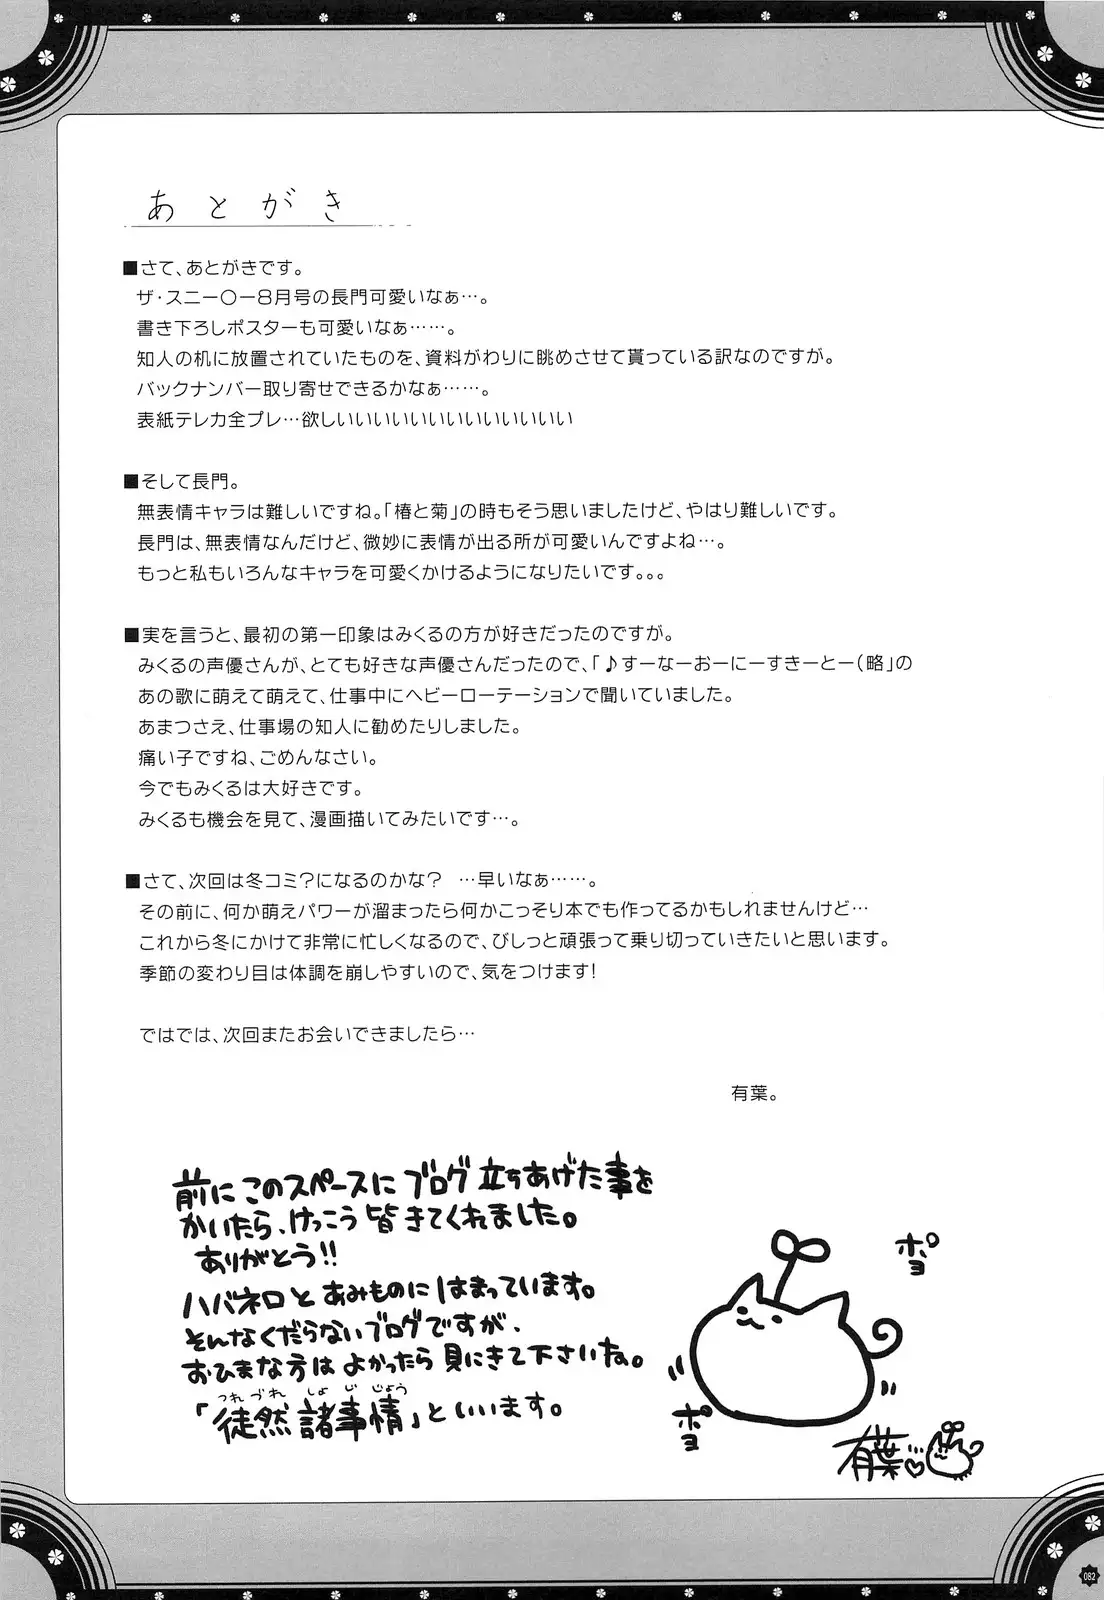 あとがき
■さて、あとがきです。
ザ・スニー〇ー8月号の長門可愛いなぁ…。
書き下ろしポスターも可愛いなぁ……。
知人の机に放置されていたものを、資料がわりに眺めさせて貰っている訳なのですが。
バックナンバー取り寄せできるかなぁ……。
表紙テレカ全プレ…欲しいいいいいいいいいいいいい
■そして長門。
無表情キャラは難しいですね。「椿と菊」の時もそう思いましたけど、やはり難しいです。
長門は、無表情なんだけど、微妙に表情が出る所が可愛いんですよね…。
もっと私もいろんなキャラを可愛くかけるようになりたいです。。。
■実を言うと、最初の第一印象はみくるの方が好きだったのですが。
みくるの声優さんが、とても好きな声優さんだったので、「♪すーなーおーにーすきーとー(略)の
あの歌に萌えて萌えて、仕事中にヘビーローテーションで聞いていました。
あまつさえ、仕事場の知人に勧めたりしました。
痛い子ですね、ごめんなさい。
今でもみくるは大好きです。
みくるも機会を見て、漫画描いてみたいです…。
■さて、次回は冬コミ？になるのかな？ …早いなぁ……。
その前に、何か萌えパワーが溜まったら何かこっそり本でも作ってるかもしれませんけど…
これから冬にかけて非常に忙しくなるので、びしっと頑張って乗り切っていきたいと思います。
季節の変わり目は体調を崩しやすいので、気をつけます!
ではでは、次回またお会いできましたら…
有葉。
前にこのスペースにブログ立ちあげた事を
かいたら、けっこう皆きてくれました。
ありがとう!!
ハバネロとあみものにはまっています。
そんなくだらないブログですが、
おひまな方はよかったら見にきて下さいね。
つれづれ しょじじょう
「徒然諸事情」といいます。
ポヨ
ポヨ
有葉
082